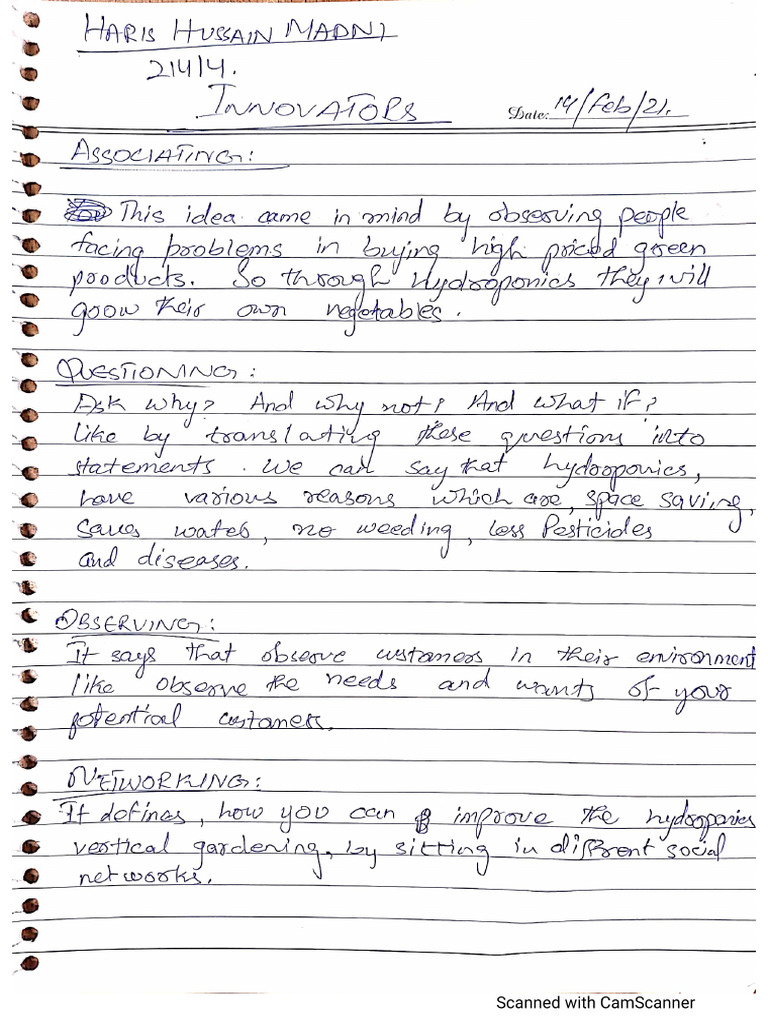 HARIS HUSSAIN MADNI
21414.
INNOVATORS
Date: 14/Feb/21.
ASSOCIATING:
This idea came in mind by observing people
facing problems in buying high priced green
products. So through Hydroponics they will
grow their own vegetables.
QUESTIONING:
Ask why? And why not? And what if?
like by translating these questions into
statements. We can say that hydroponics,
have various reasons which are, space saving,
Saves water, no weeding, less Pesticides
and diseases.
OBSERVING:
It says that observe customers in their environment
like observe the needs and wants of your
potential customers.
NETWORKING:
It defines, how you can improve the hydroponics
vertical gardening, by sitting in different social
networks.
Scanned with CamScanner